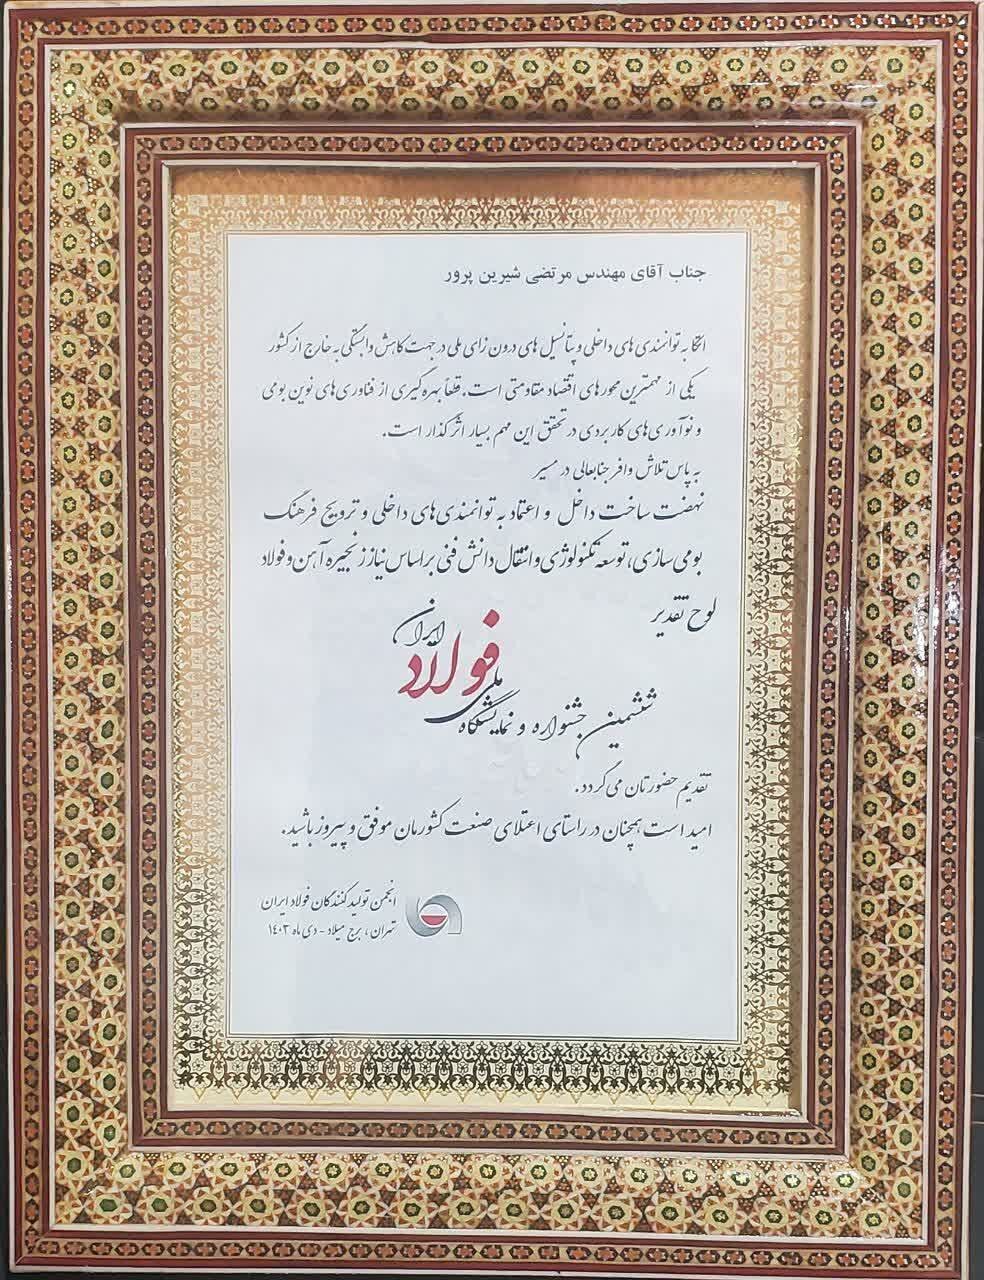 جناب آقای مهندس مرتضی شیرین پرور
اتکا به توانمندی های داخلی و پتانسیل های درون زای ملی در جهت کاهش وابستگی به خارج از کشور
یکی از مهمترین محورهای اقتصاد مقاومتی است. قطعاً بهره گیری از فناوری های نوین بومی
و نوآوری های کاربردی در تحقق این مهم بسیار اثرگذار است.
به پاس تلاش وافر جنابعالی در مسیر
نهضت ساخت داخل و اعتماد به توانمندی های داخلی و ترویج فرهنگ
بومی سازی، توسعه تکنولوژی و انتقال دانش فنی بر اساس نیاز زنجیره آهن و فولاد
لوح تقدیر
ششمین جشنواره و نمایشگاه ملی فولاد ایران
تقدیم حضورتان می گردد.
امید است همچنان در راستای اعتلای صنعت کشورمان موفق و پیروز باشید.
انجمن تولیدکنندگان فولاد ایران
تهران، برج میلاد - دی ماه ۱۴۰۳